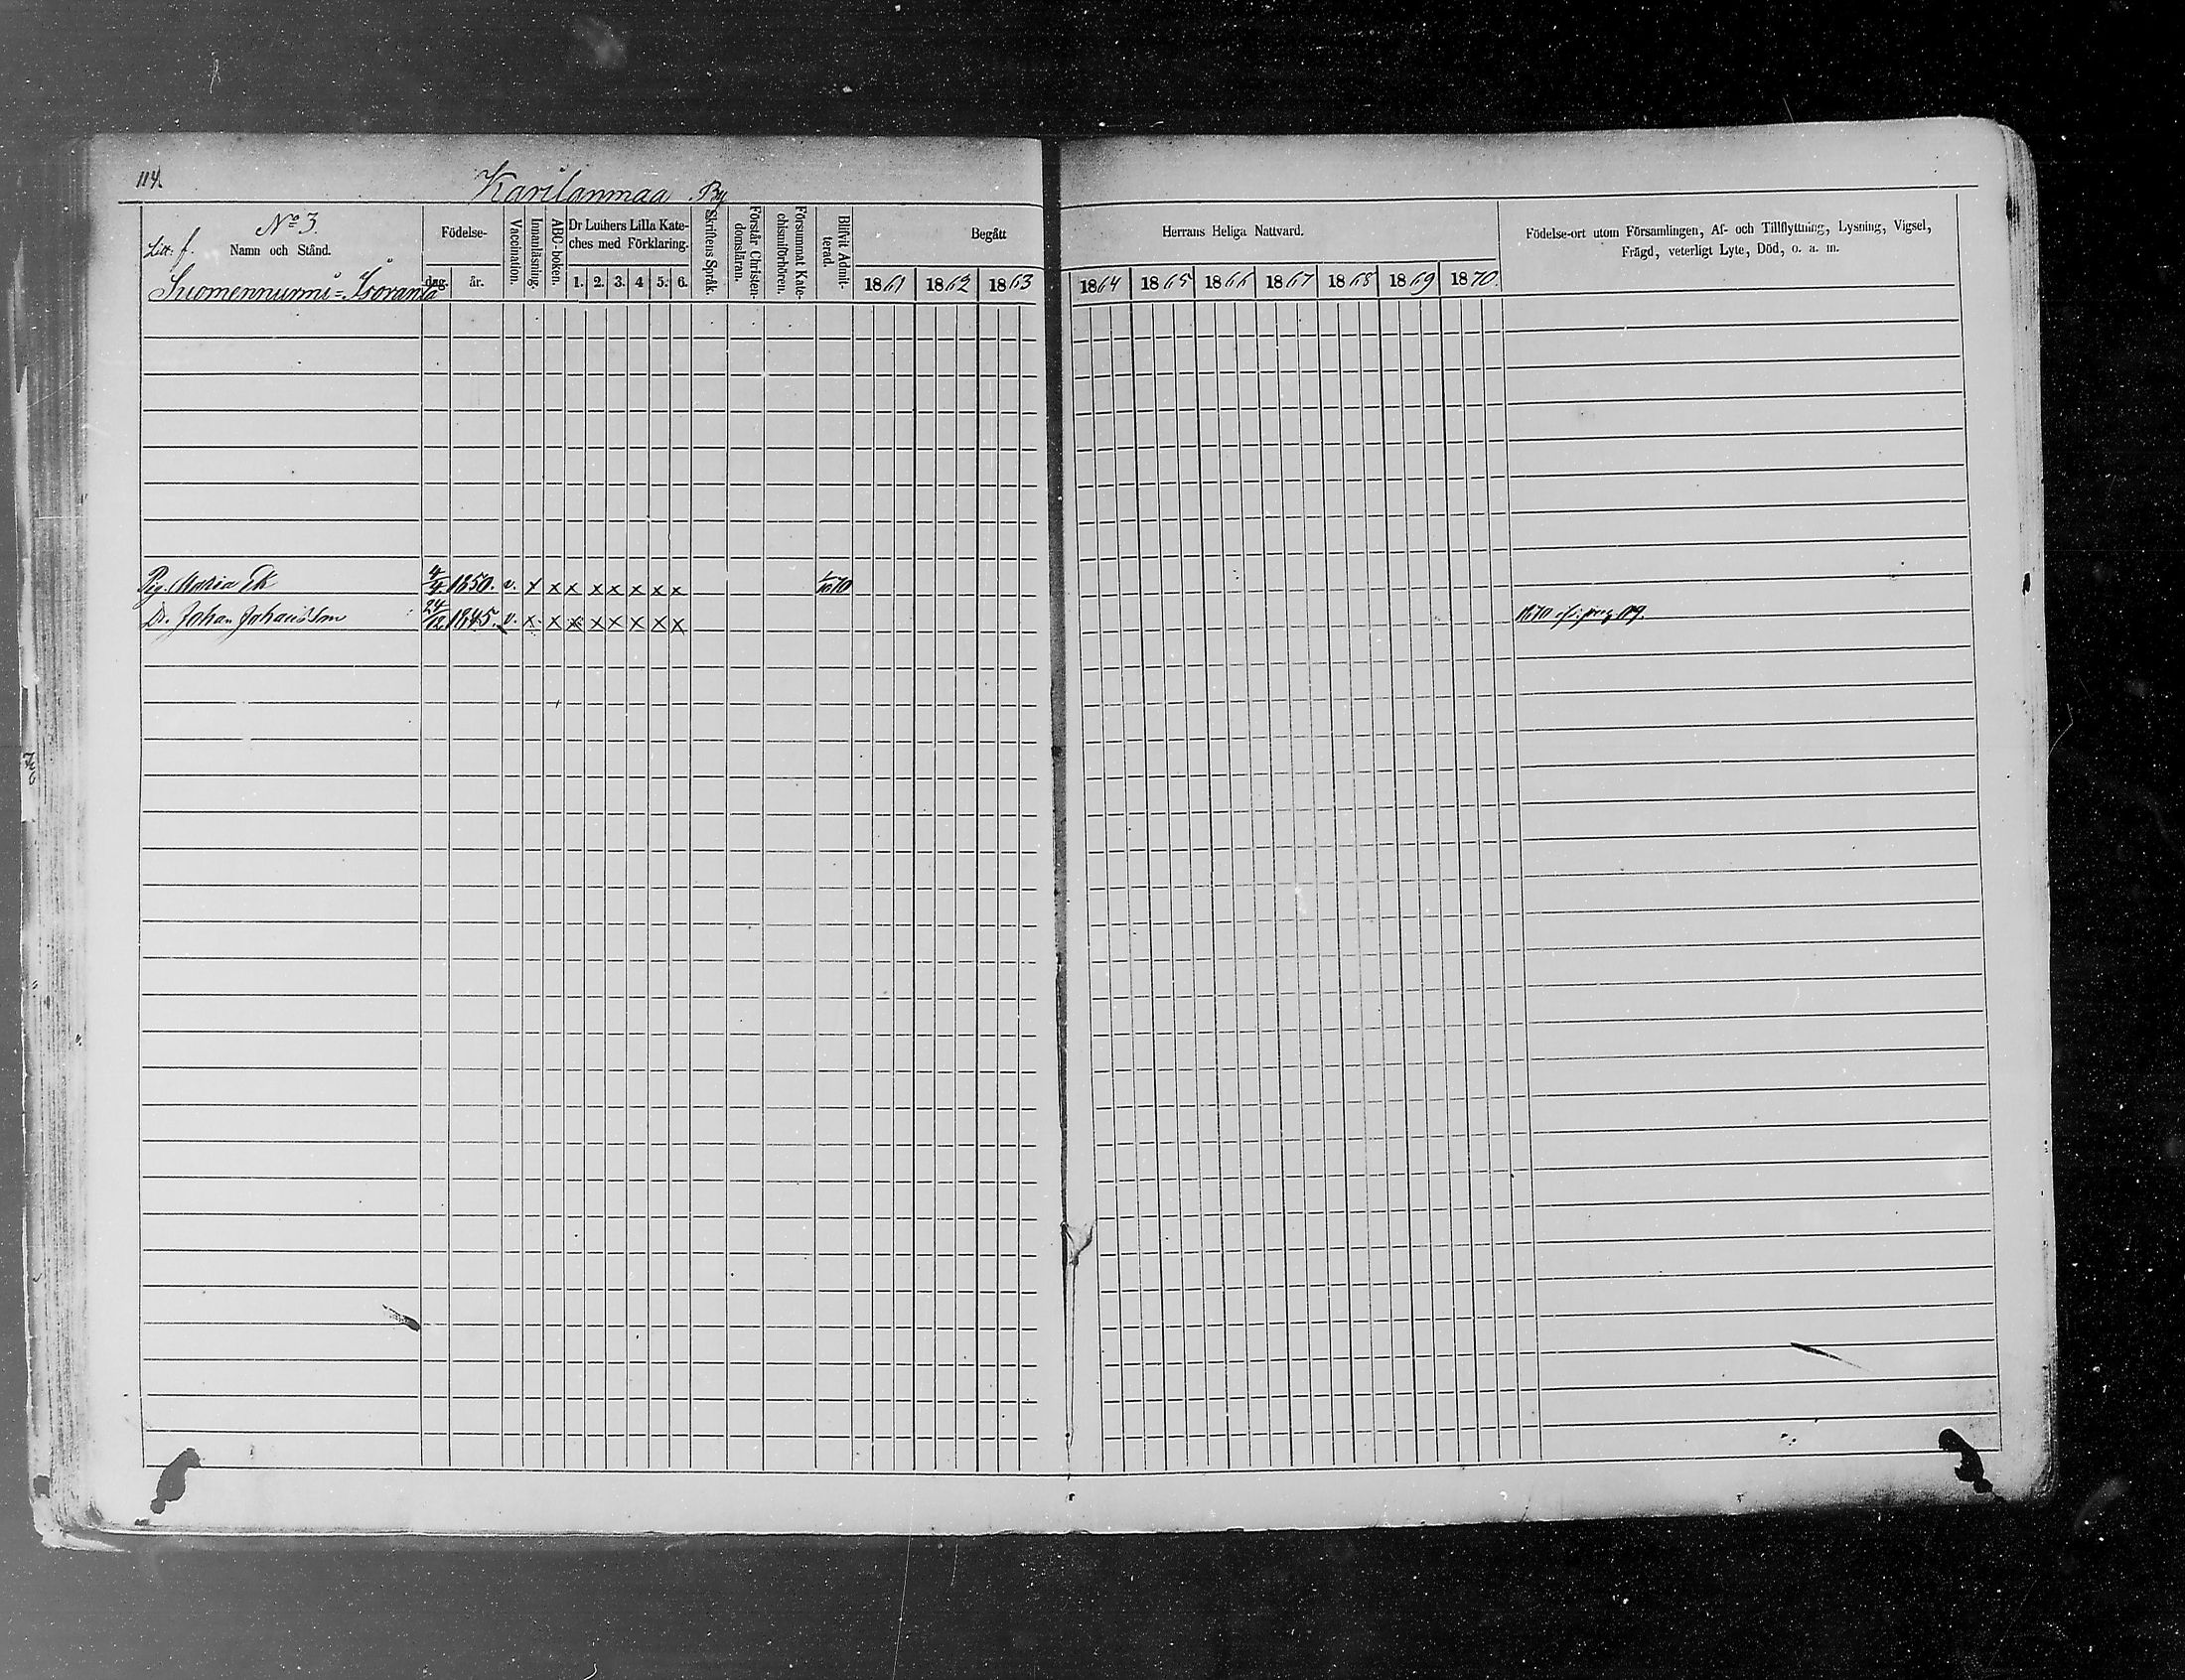 114.
Karilanmaa By
No 3.
Litt: f.
Namn och Stånd.
Suomennurmi=Isoranta
Födelse-
dag.
år.
Vaccination.
Innanläsning.
ABC-boken.
Dr Luthers Lilla Kate-
ches med Förklaring.
1. 2. 3. 4 5. 6.
Skriftens Språk.
Förstår Christen-
domsläran.
Försummat Kate-
chismiförhören.
Blifvit Admit-
terad.
Begått
1861 1862 1863
Herrans Heliga Nattvard.
1864 1865 1866 1867 1868 1869 1870.
Födelse-ort utom Församlingen, Af- och Tillflyttning, Lysning, Vigsel,
Frägd, veterligt Lyte, Död, o. a. m.
Pig. Maria Ek 4/4. 1850. v. x x x x x x x x
Dr. Johan Johansson 24/12. 1845. v. x x x x x x x x 1870 pag. 119.